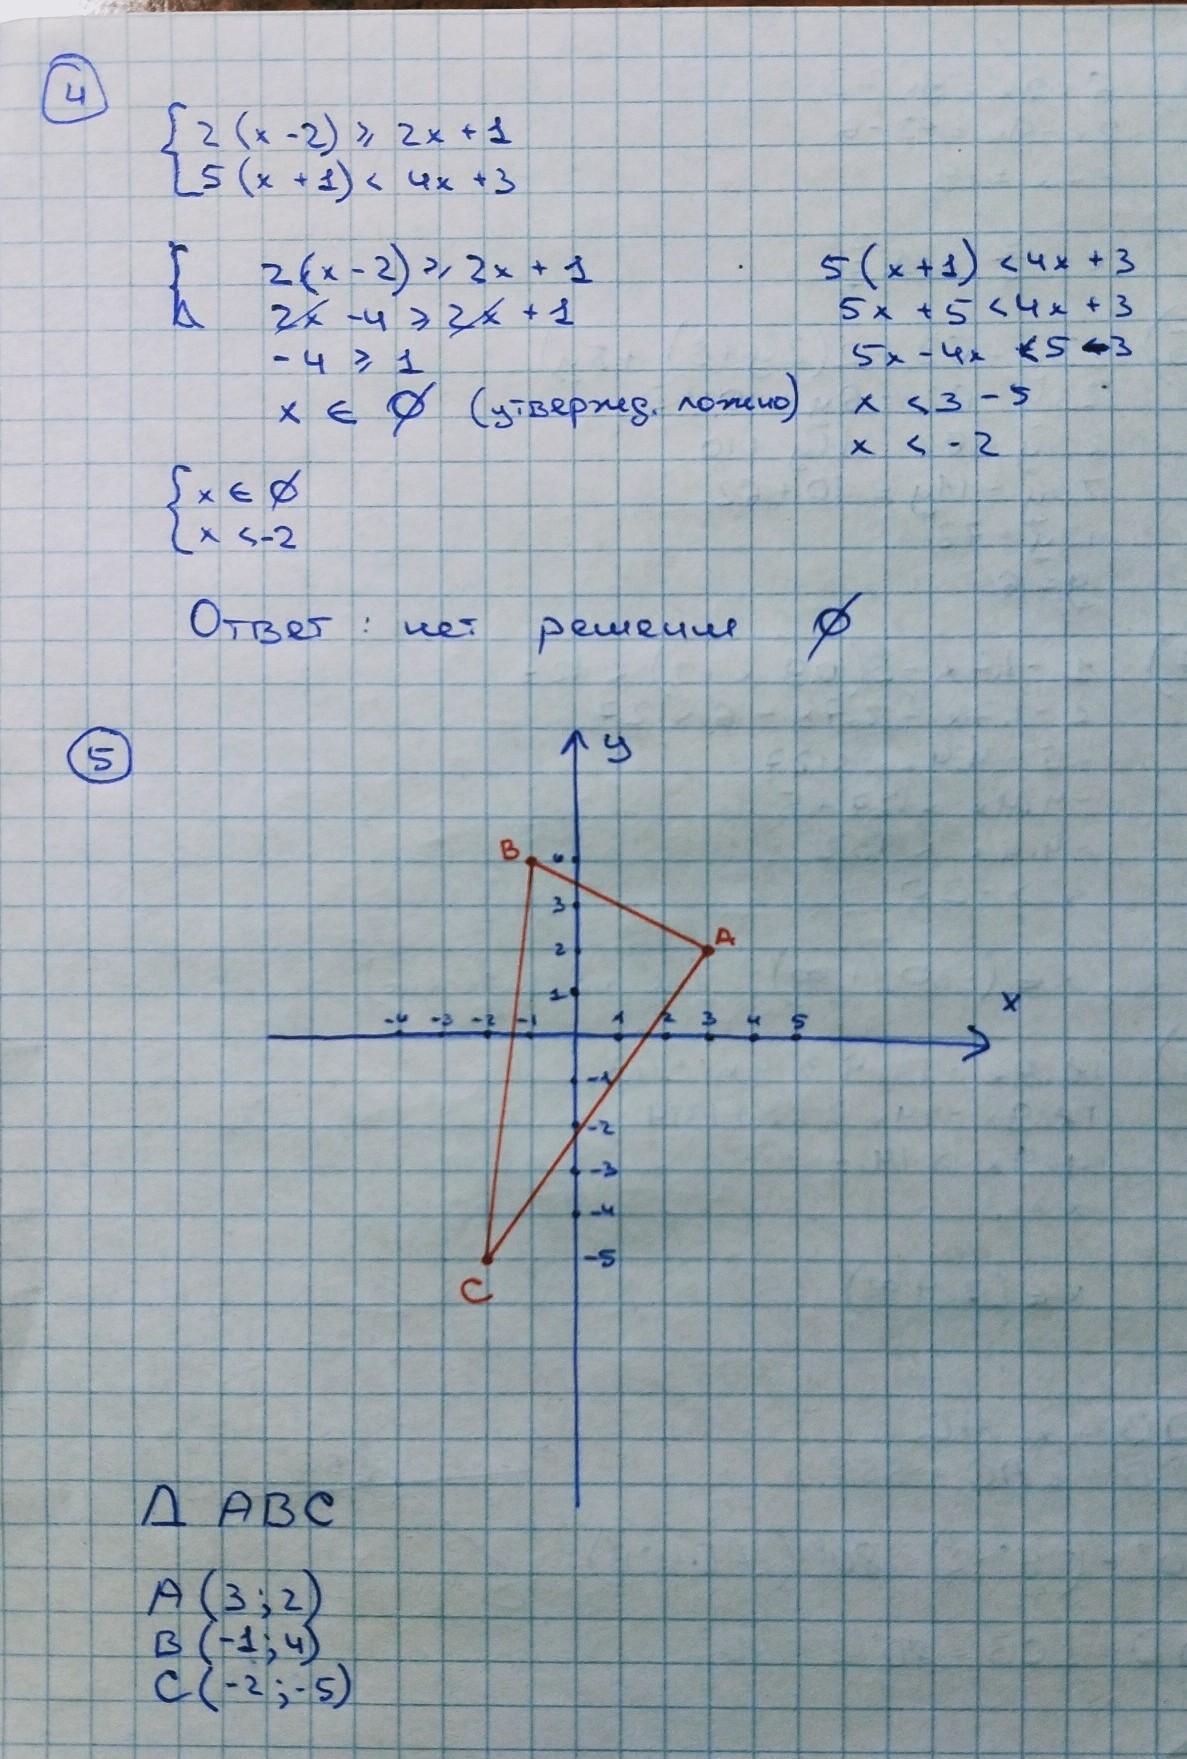 4
2(x-2) ⩾ 2x+1
5(x+1) < 4x+3
2(x-2) ⩾ 2x+1
2x -4 ⩾ 2x +1
-4 ⩾ 1
x ∈ ∅ (утвержд. ложно)
5(x+1) < 4x+3
5x +5 < 4x +3
5x-4x < 5 3
x < 3 - 5
x < -2
x ∈ ∅
x < -2
Ответ: нет решения ∅
5
y
B 4
3
A
2
1
x
-4 -3 -2 -1 1 2 3 4 5
-1
-2
-3
-4
-5
C
Δ ABC
A (3;2)
B (-1;4)
C (-2;-5)